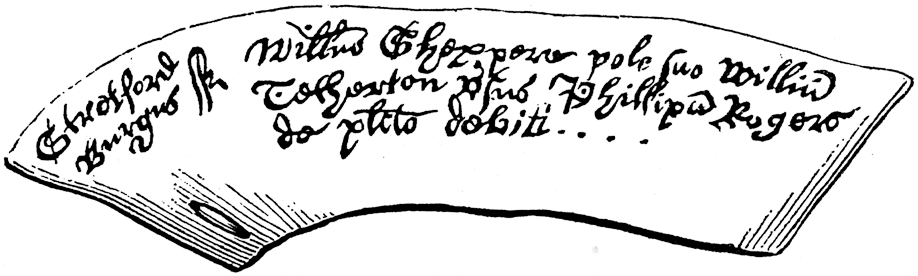 Stretford
Burgus
Willm̄s Shexpere pole suo Willm̄
Tetherton vs̄us Phillipū Rogers
de pl̄ito debiti . . . .